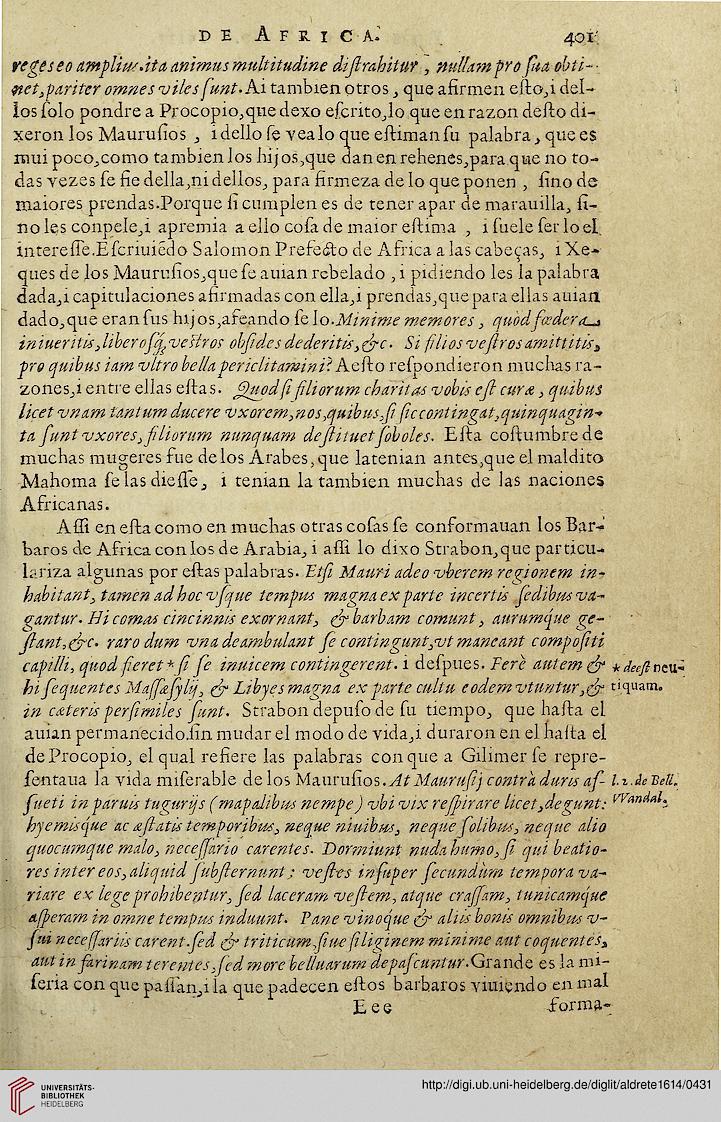 DE AFRICA. 401
regeseo amplius.ita animus multitudine distrahitur, nullam pro sua obti-
net, pariter omnes viles sunt. Ai tambien otros, que afirmen esto, i del-
los solo pondre a Procopio, que dexo escrito, lo que en razon desto di-
xeron los Maurusios, i dello se vea lo que estiman su palabra, que es
mui poco, como tambien los hijos, que dan en rehenes, para que no to-
das vezes se fie della, ni dellos, para firmeza de lo que ponen, sino de
maiores prendas. Porque si cumplen es de tener apar de marauilla, si-
no les conpele, i apremia a ello cosa de maior estima, i suele ser lo el
interesse. Escriuiẽdo Salomon Prefecto de Africa a las cabeças, i Xe-
ques de los Maurusios, que se auian rebelado, i pidiendo les la palabra
dada, i capitulaciones afirmadas con ella, i prendas, que para ellas auian
dado, que eran sus hijos, afeando se lo. Minime memores, quòd fœdera
iniueritis, liberosq̃, vestros obsides dederitis, &c. Si filios vestros amittitis,
pro quibus iam vltro bella periclitamini? A esto respondieron muchas ra-
zones, i entre ellas estas. Quod si filiorum charitas vobis est curæ, quibus
licet vnam tantum ducere vxorem, nos, quibus, si sic contingat, quinquagin-
ta sunt vxores, filiorum nunquam destituet soboles. Esta costumbre de
muchas mugeres fue de los Arabes, que la tenian antes, que el maldito
Mahoma se las diesse, i tenian la tambien muchas de las naciones
Africanas.
Assi en esta como en muchas otras cosas se conformauan los Bar-
baros de Africa con los de Arabia, i assi lo dixo Strabon, que particu-
lariza algunas por estas palabras. Etsi Mauri adeo vberem regionem in-
habitant, tamen ad hoc vsque tempus magna ex parte incertis sedibus va-
gantur. Hi comas cincinnis exornant, & barbam comunt, aurumque ge-
stant, &c. raro dum vna deambulant se contingunt, vt maneant compositi
capilli, quod fieret * si se inuicem contingerent. i despues. Ferè autem &
* deest neu-
hi sequentes Massæsylij, & Libyes magna ex parte cultu eodem vtuntur, &
tiquam.
in cæteris persimiles sunt. Strabon depuso de su tiempo, que hasta el
auian permanecido. sin mudar el modo de vida, i duraron en el hasta el
de Procopio, el qual refiere las palabras con que a Gilimer se repre-
sentaua la vida miserable de los Maurusios. At Maurusij contrà duris as-
l. 2. de Bell.
sueti in paruis tugurijs (mapalibus nempe) vbi vix respirare licet, degunt:
VVandal.
hyemisque ac æstatis temporibus, neque niuibus, neque solibus, neque alio
quocumque malo, necessario carentes. Dormiunt nuda humo, si qui beatio-
res inter eos, aliquid substernunt; vestes insuper secundùm tempora va-
riare ex lege prohibentur, sed laceram vestem, atque crassam, tunicamque
asperam in omne tempus induunt. Pane vinoque & aliis bonis omnibus v-
sui necessariis carent. sed & triticum, siue siliginem minime aut coquentes,
aut in farinam terentes, sed more belluarum depascuntur. Grande es la mi-
seria con que passan, i la que padecen estos barbaros viuiendo en mal
Eee forma-
UNIVERSITÄTS-
BIBLIOTHEK
HEIDELBERG
http://digi.ub.uni-heidelberg.de/diglit/aldrete1614/0431